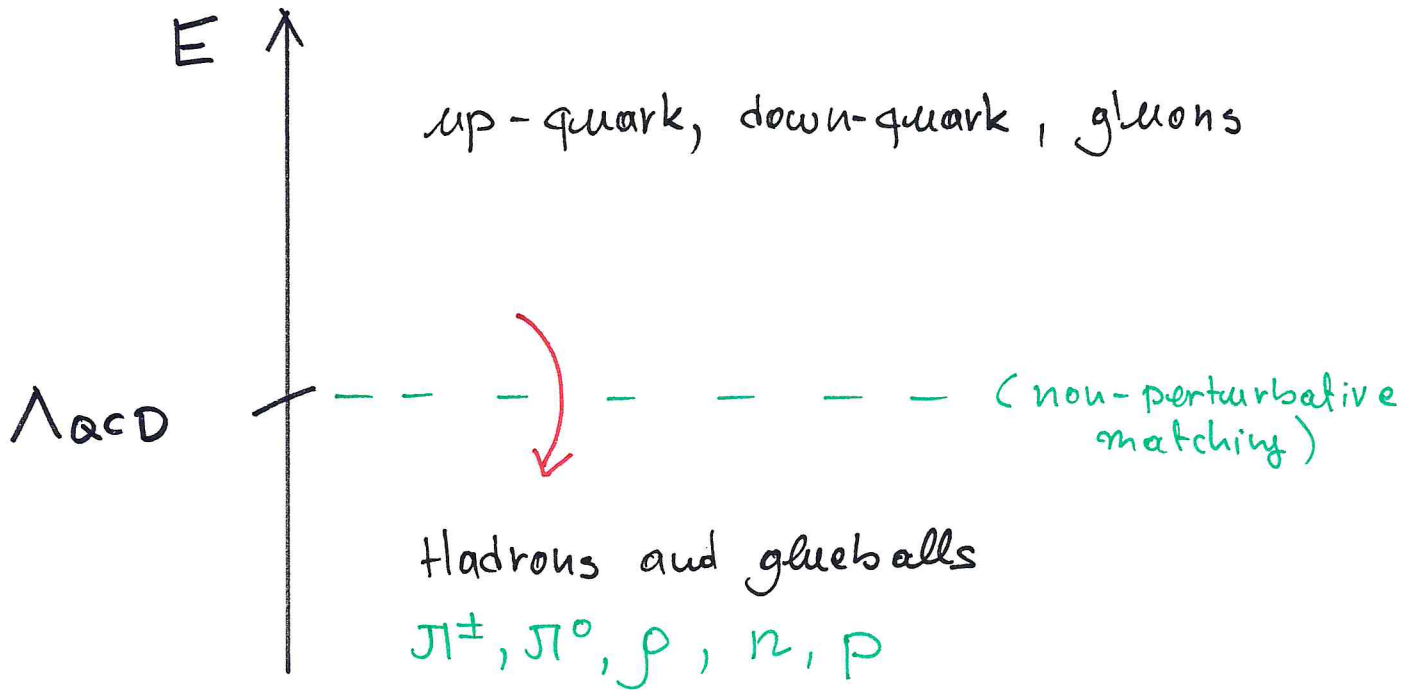 E
up-quark, down-quark, gluons
ΛQCD
(non-perturbative
matching)
Hadrons and glueballs
π±, π⁰, ρ, n, p